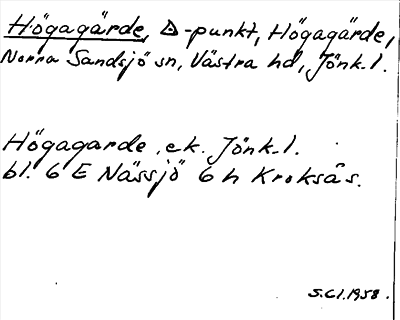 Högagärde, △-punkt, Högagärde,
Norra Sandsjö sn, Västra hd, Jönk. l.
Högagarde. ek. Jönk. l.
bl. 6 E Nässjö 6 h Kroksås.
S.Cl. 1958.